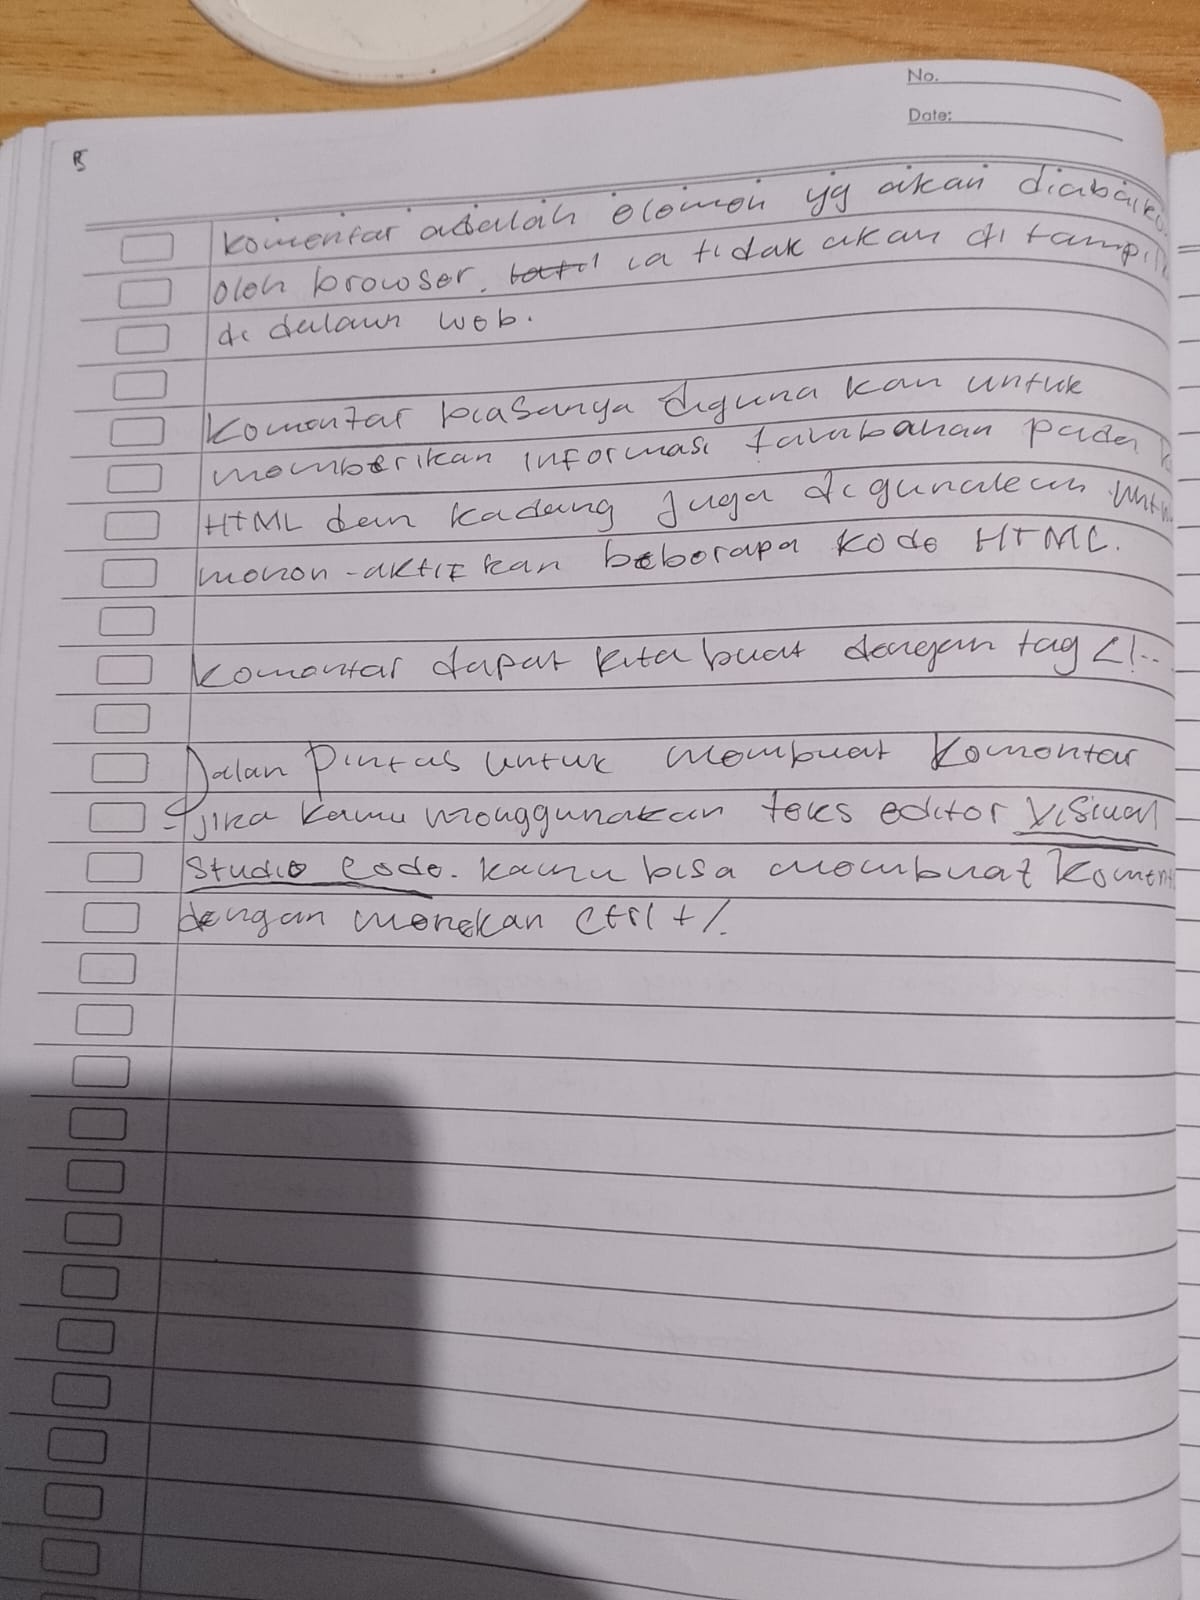 No.
Date:
komentar adalah elemen yg akan
oleh browser. ia tidak akan di
di dalam web.
Komentar biasanya diguna kan untuk
memberikan informasi tambahan pada
HTML dan kadang juga digunakan
menon-aktifkan beberapa kode HTML.
komentar dapat kita buat dengan tag <!--
Jalan Pintas untuk membuat komentar
- jika kamu menggunakan teks editor Visiual
Studio Code. kamu bisa membuat
dengan menekan Ctrl + /.